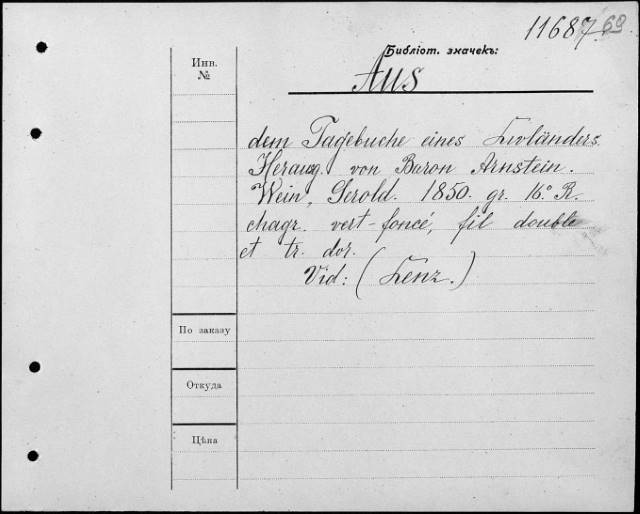 11687
69
Библіот. значекъ:
Инв.
№
Aus
dem Tagebuche eines Livländers.
Herausg. von Baron Arnstein.
Wein, Gerold. 1850. gr. 16.° R.
chagr. vert-foncé, fil double
et tr. dor.
Vid: (Lenz.)
По заказу
Откуда
Цѣна